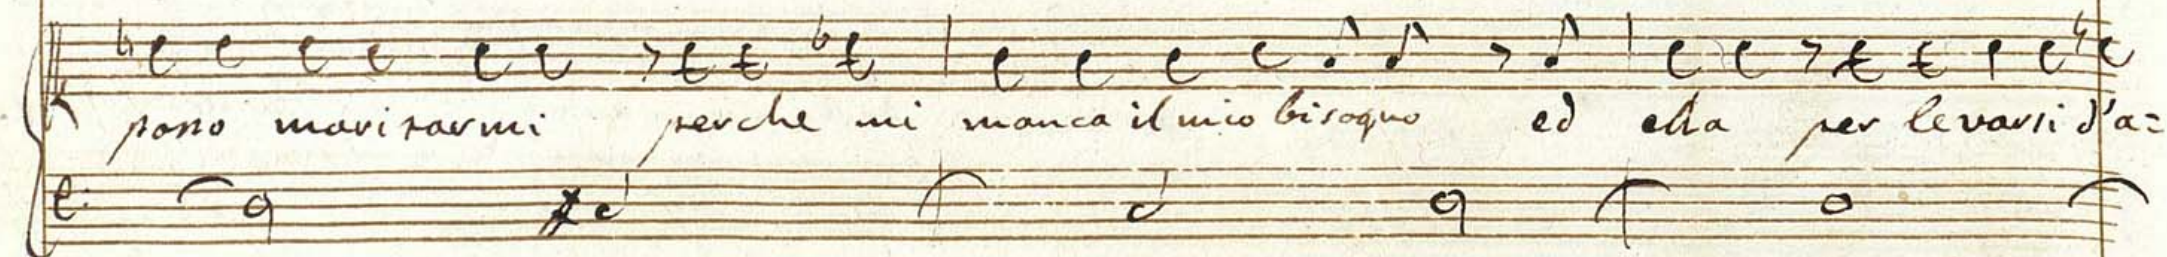 posso maritarmi perche mi manca il mio bisogno ed ella per levarsi d'a=